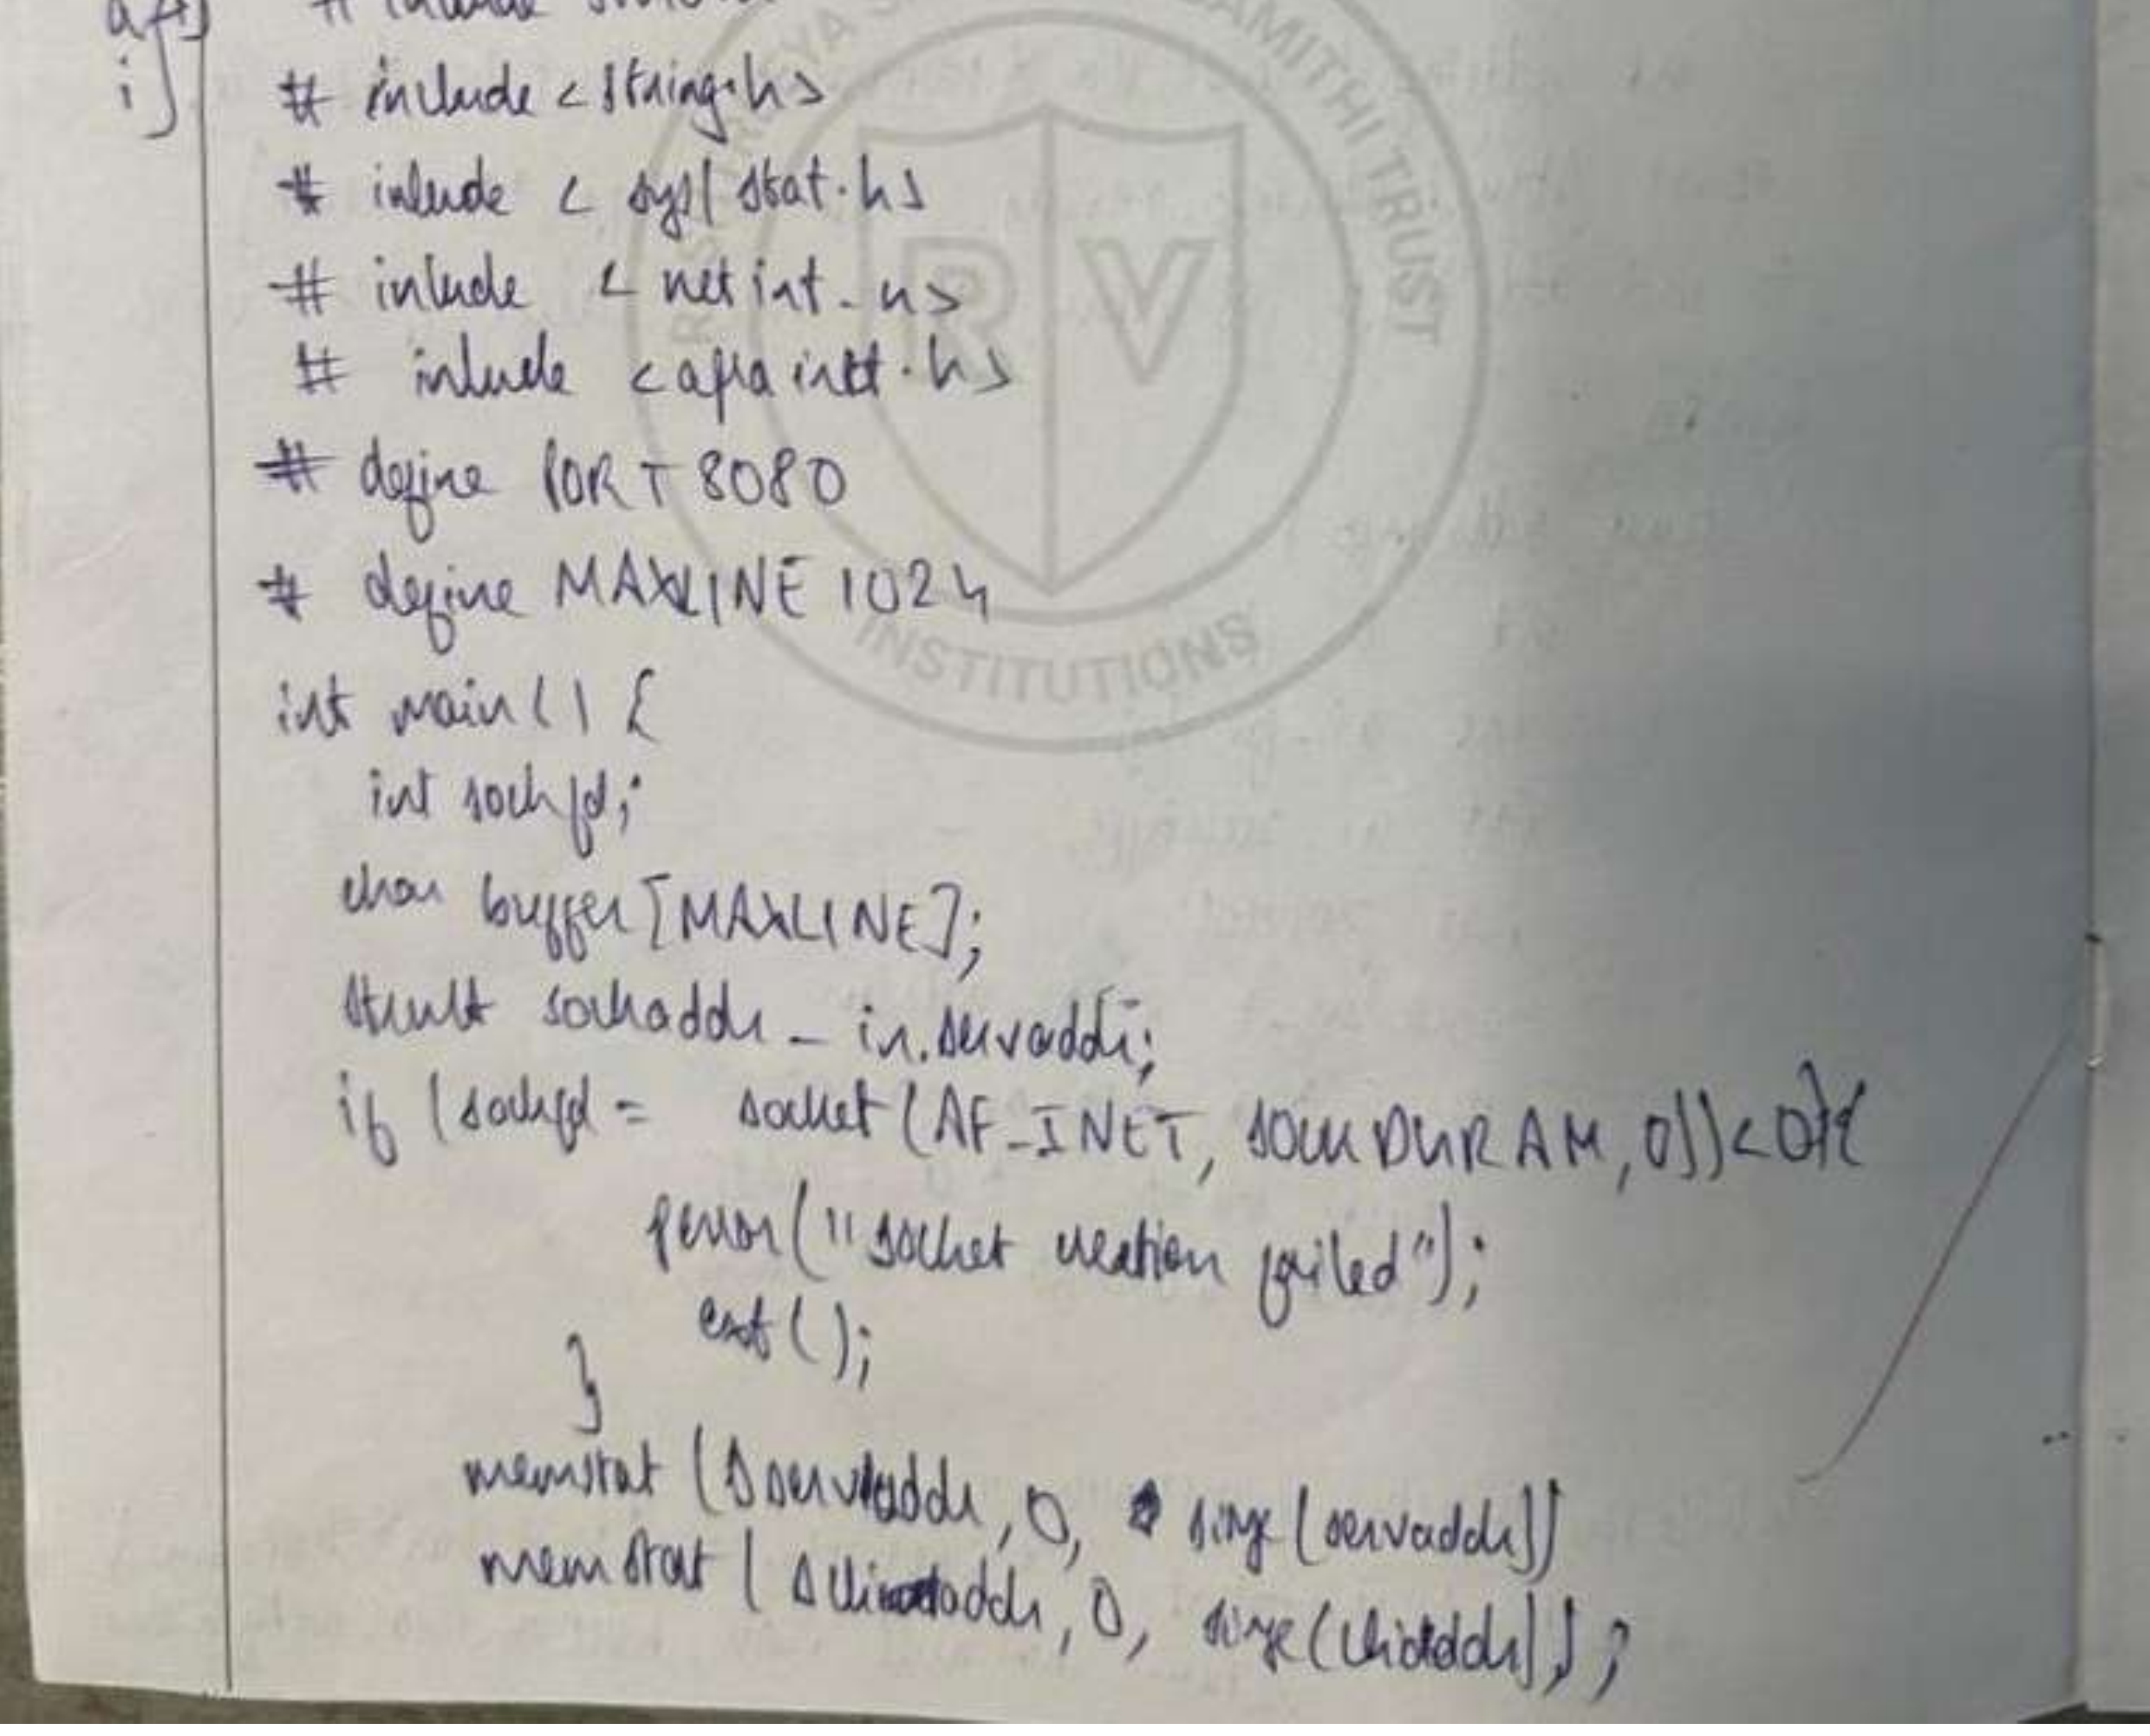 a)
i)
# include
# include <string.h>
# inlude < sys/ stat.h>
# inlude < net int_ h>
# inlude <apra intt.h>
# define PORT 8080
# define MAXLINE 1024
int main() {
int sockfd;
char buffer[MAXLINE];
struct sockaddr_in.servaddr;
if (sockfd = socket (AF_INET, SOCK DURAM, 0)) < 0){
perror("socket creation failed");
exit();
}
memstat (&servaddr, 0, size (servaddr))
memstat ( & , 0, size( ));
SAMITHI TRUST
RV
INSTITUTIONS